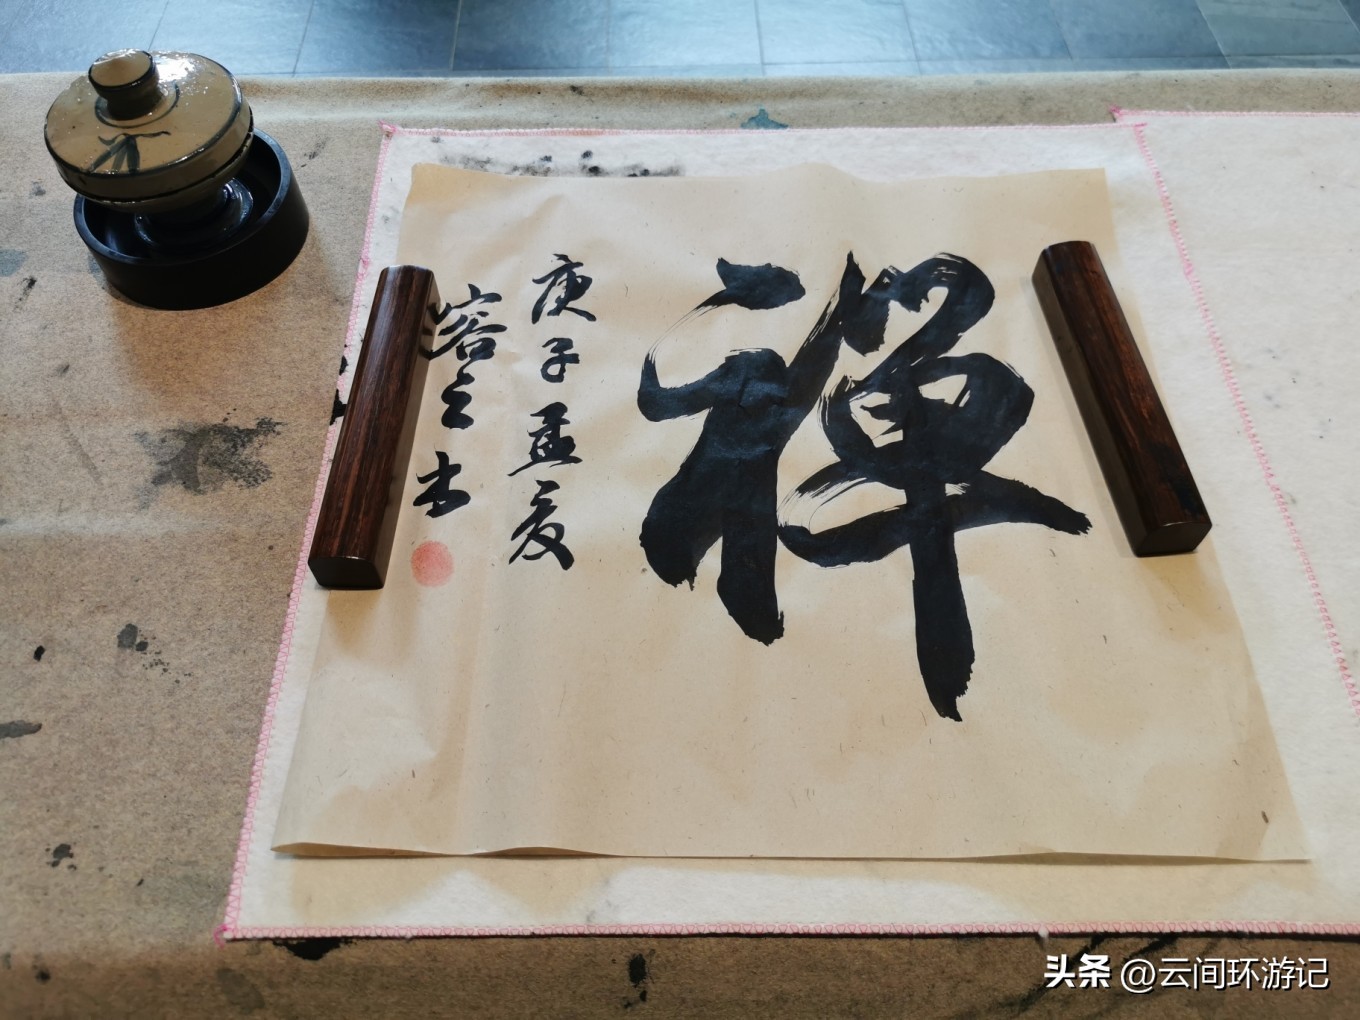 禪
庚子孟夏
容之书
头条 @云间环游记